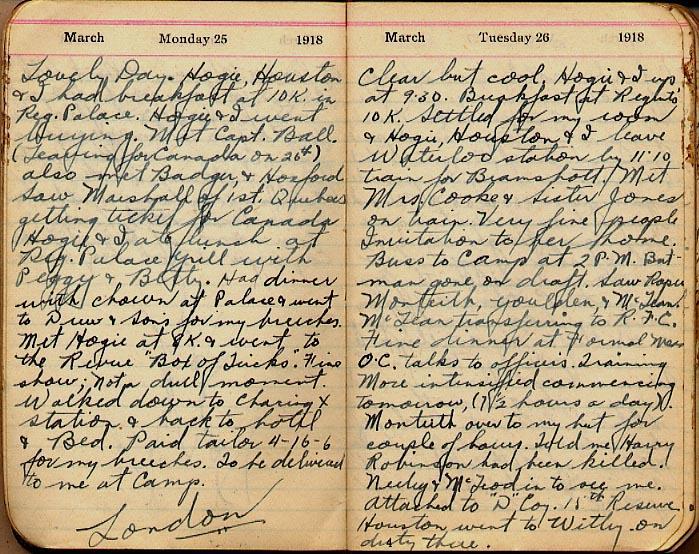 March Monday 25 1918
Lovely Day. Hogie, Houston
& I had breakfast at 10 K. in
Reg. Palace. Hogie & I went
buying. Met Capt. Ball.
(Leaving for Canada on 26th),
also met Badger, & Hosford
Saw Marshall of 1st. Quebec
getting ticket for Canada
Hogie & I ate lunch at
Reg. Palace Grill with
Peggy & Betty. Had dinner
with chown at Palace & went
to & Sons for my breeches.
Met Hogie at 8 K. & went to
the Revue "Box of Tricks". Fine
show; Not a dull moment.
Walked down to Charing X
station & back to hotel
& Bed. Paid tailor 4-16-6
for my breeches. To be delivered
to me at Camp.
London
March Tuesday 26 1918
Clear but cool, Hogie & I up
at 9.30. Breakfast at Regents
10 K. Settled for my room
& Hogie, Houston & I leave
Waterloo station by 11:10
train for Bramshott. Met
Mrs. Cooke & Sister Jones
on train. Very fine people
Invitation to her home.
Buss to Camp at 2 P.M. Bat-
man gone on draft. Saw
Monteith, & McLean.
McLean transferring to R.F.C.
Fine dinner at Formal Mess
O.C. talks to officers. Training
More intensified commencing
tomorrow, (7 1/2 hours a day).
Monteith over to my hut for
couple of hours. Told me Harry
Robinson had been killed.
Neely & McLeod in to see me.
Attached to "D" Coy. 15th Reserve.
Houston went to Witley on
duty there.